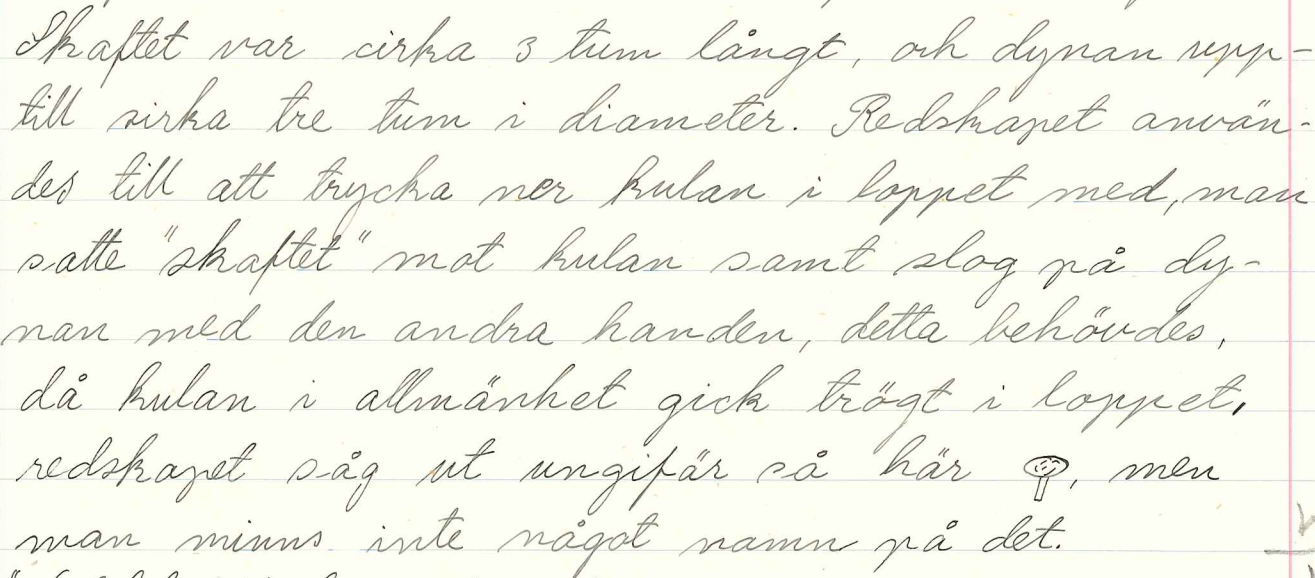 Skaftet var cirka 3 tum långt, och dynan upp-
till sirka tre tum i diameter. Redskapet använ-
des till att trycka ner kulan i loppet med, man
satte "skaftet" mot kulan samt slog på dy-
nan med den andra handen, detta behövdes,
då kulan i allmänhet gick trögt i loppet,
redskapet såg ut ungifär så här , men
man minns inte något namn på det.